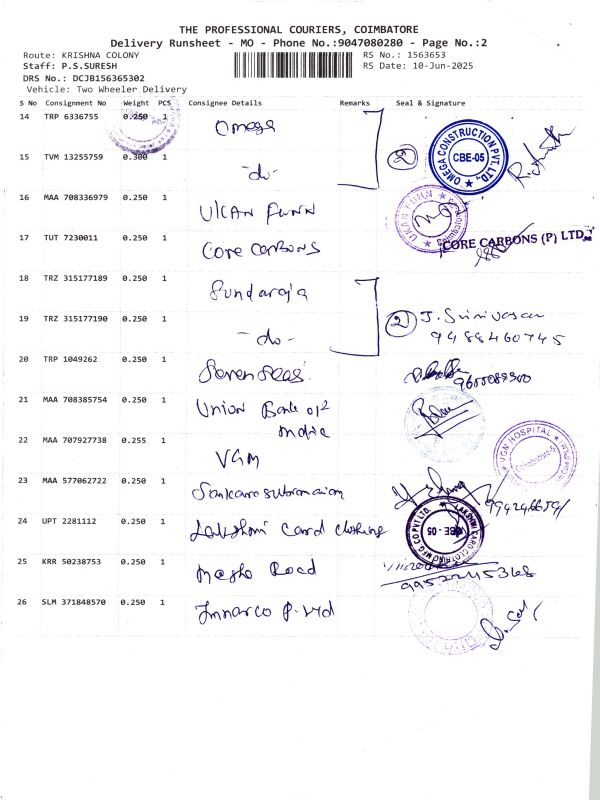 THE PROFESSIONAL COURIERS, COIMBATORE
Delivery Runsheet - MO - Phone No.:9047080280 - Page No.:2
Route: KRISHNA COLONY
RS No.: 1563653
Staff: P.S.SURESH
RS Date: 10-Jun-2025
DRS No.: DCJB156365302
Vehicle: Two Wheeler Delivery
S No Consignment No Weight PCS Consignee Details Remarks Seal & Signature
14 TRP 6336755 0.250 1 Omega
OMEGA CONSTRUCTION PVT.LTD., CBE-05
15 TVM 13255759 0.300 1 -do- 2
16 MAA 708336979 0.250 1 UKAN FUNN
17 TUT 7230011 0.250 1 Core Carbons
CORE CARBONS (P) LTD.
18 TRZ 315177189 0.250 1 Sundaraja
19 TRZ 315177190 0.250 1 -do- 2 J. Srinivasan
9488460745
20 TRP 1049262 0.250 1 Seven Seas
21 MAA 708385754 0.250 1 Union Bank of
India
22 MAA 707927738 0.255 1 VGM
VGN HOSPITAL
23 MAA 577062722 0.250 1 Sankarasubramaniam
24 UPT 2281112 0.250 1 Lakshmi Card Clothing
LAKSHMI CARD CLOTHING MFG CO PVT LTD. CBE - 05
25 KRR 50238753 0.250 1 Road
26 SLM 371848570 0.250 1